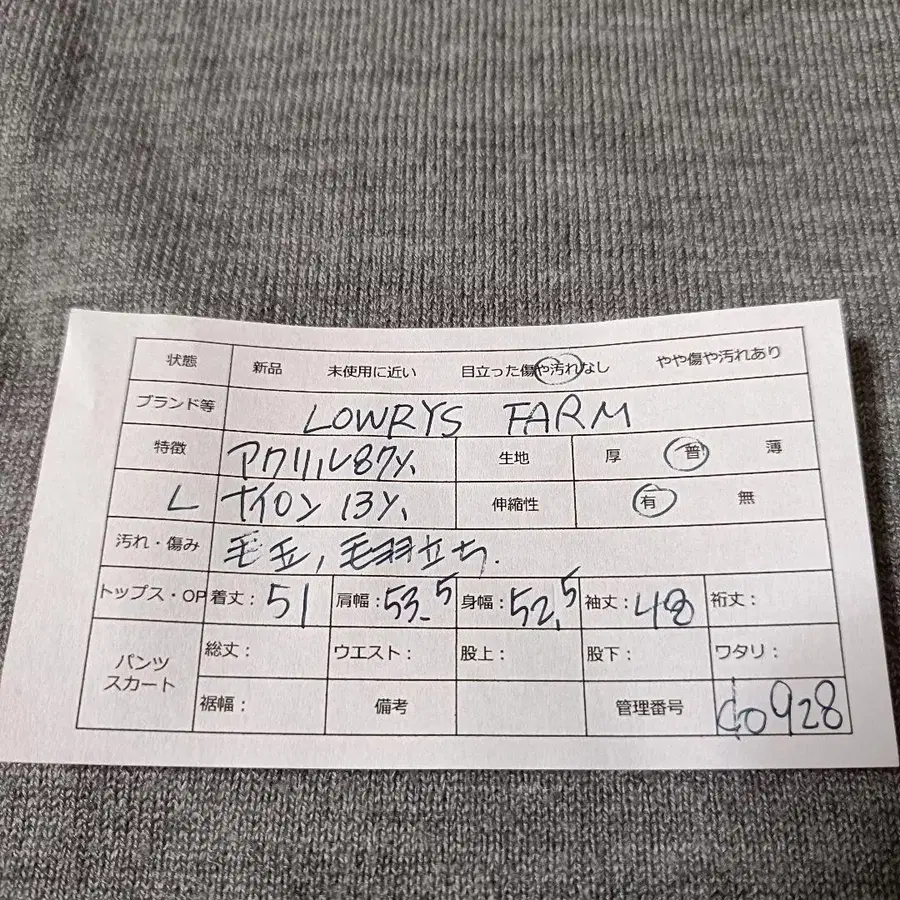 状態 新品 未使用に近い 目立った傷や汚れなし やや傷や汚れあり
ブランド等 LOWRYS FARM
特徴 アクリル87% 生地 厚 普 薄
L ナイロン 13% 伸縮性 有 無
汚れ・傷み 毛玉, 毛羽立ち.
トップス・OP 着丈: 51 肩幅: 53.5 身幅: 52.5 袖丈: 48 裄丈:
パンツ 総丈: ウエスト: 股上: 股下: ワタリ:
スカート
裾幅: 備考 管理番号 928